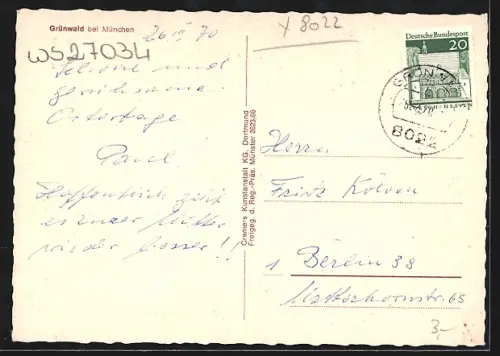 Grünwald bei München
26 III 70
y 8022
WS27034
Schöne und
geruhsame
Ostertage
Paul
Hoffentlich geht
es eurer Mutter
wieder besser!!
Cramers Kunstanstalt KG, Dortmund
Freigeg. d. Reg.-Präs. Münster
Deutsche Bundespost
20
8022
Herrn
Fritz
1 Berlin 38
65
3,-